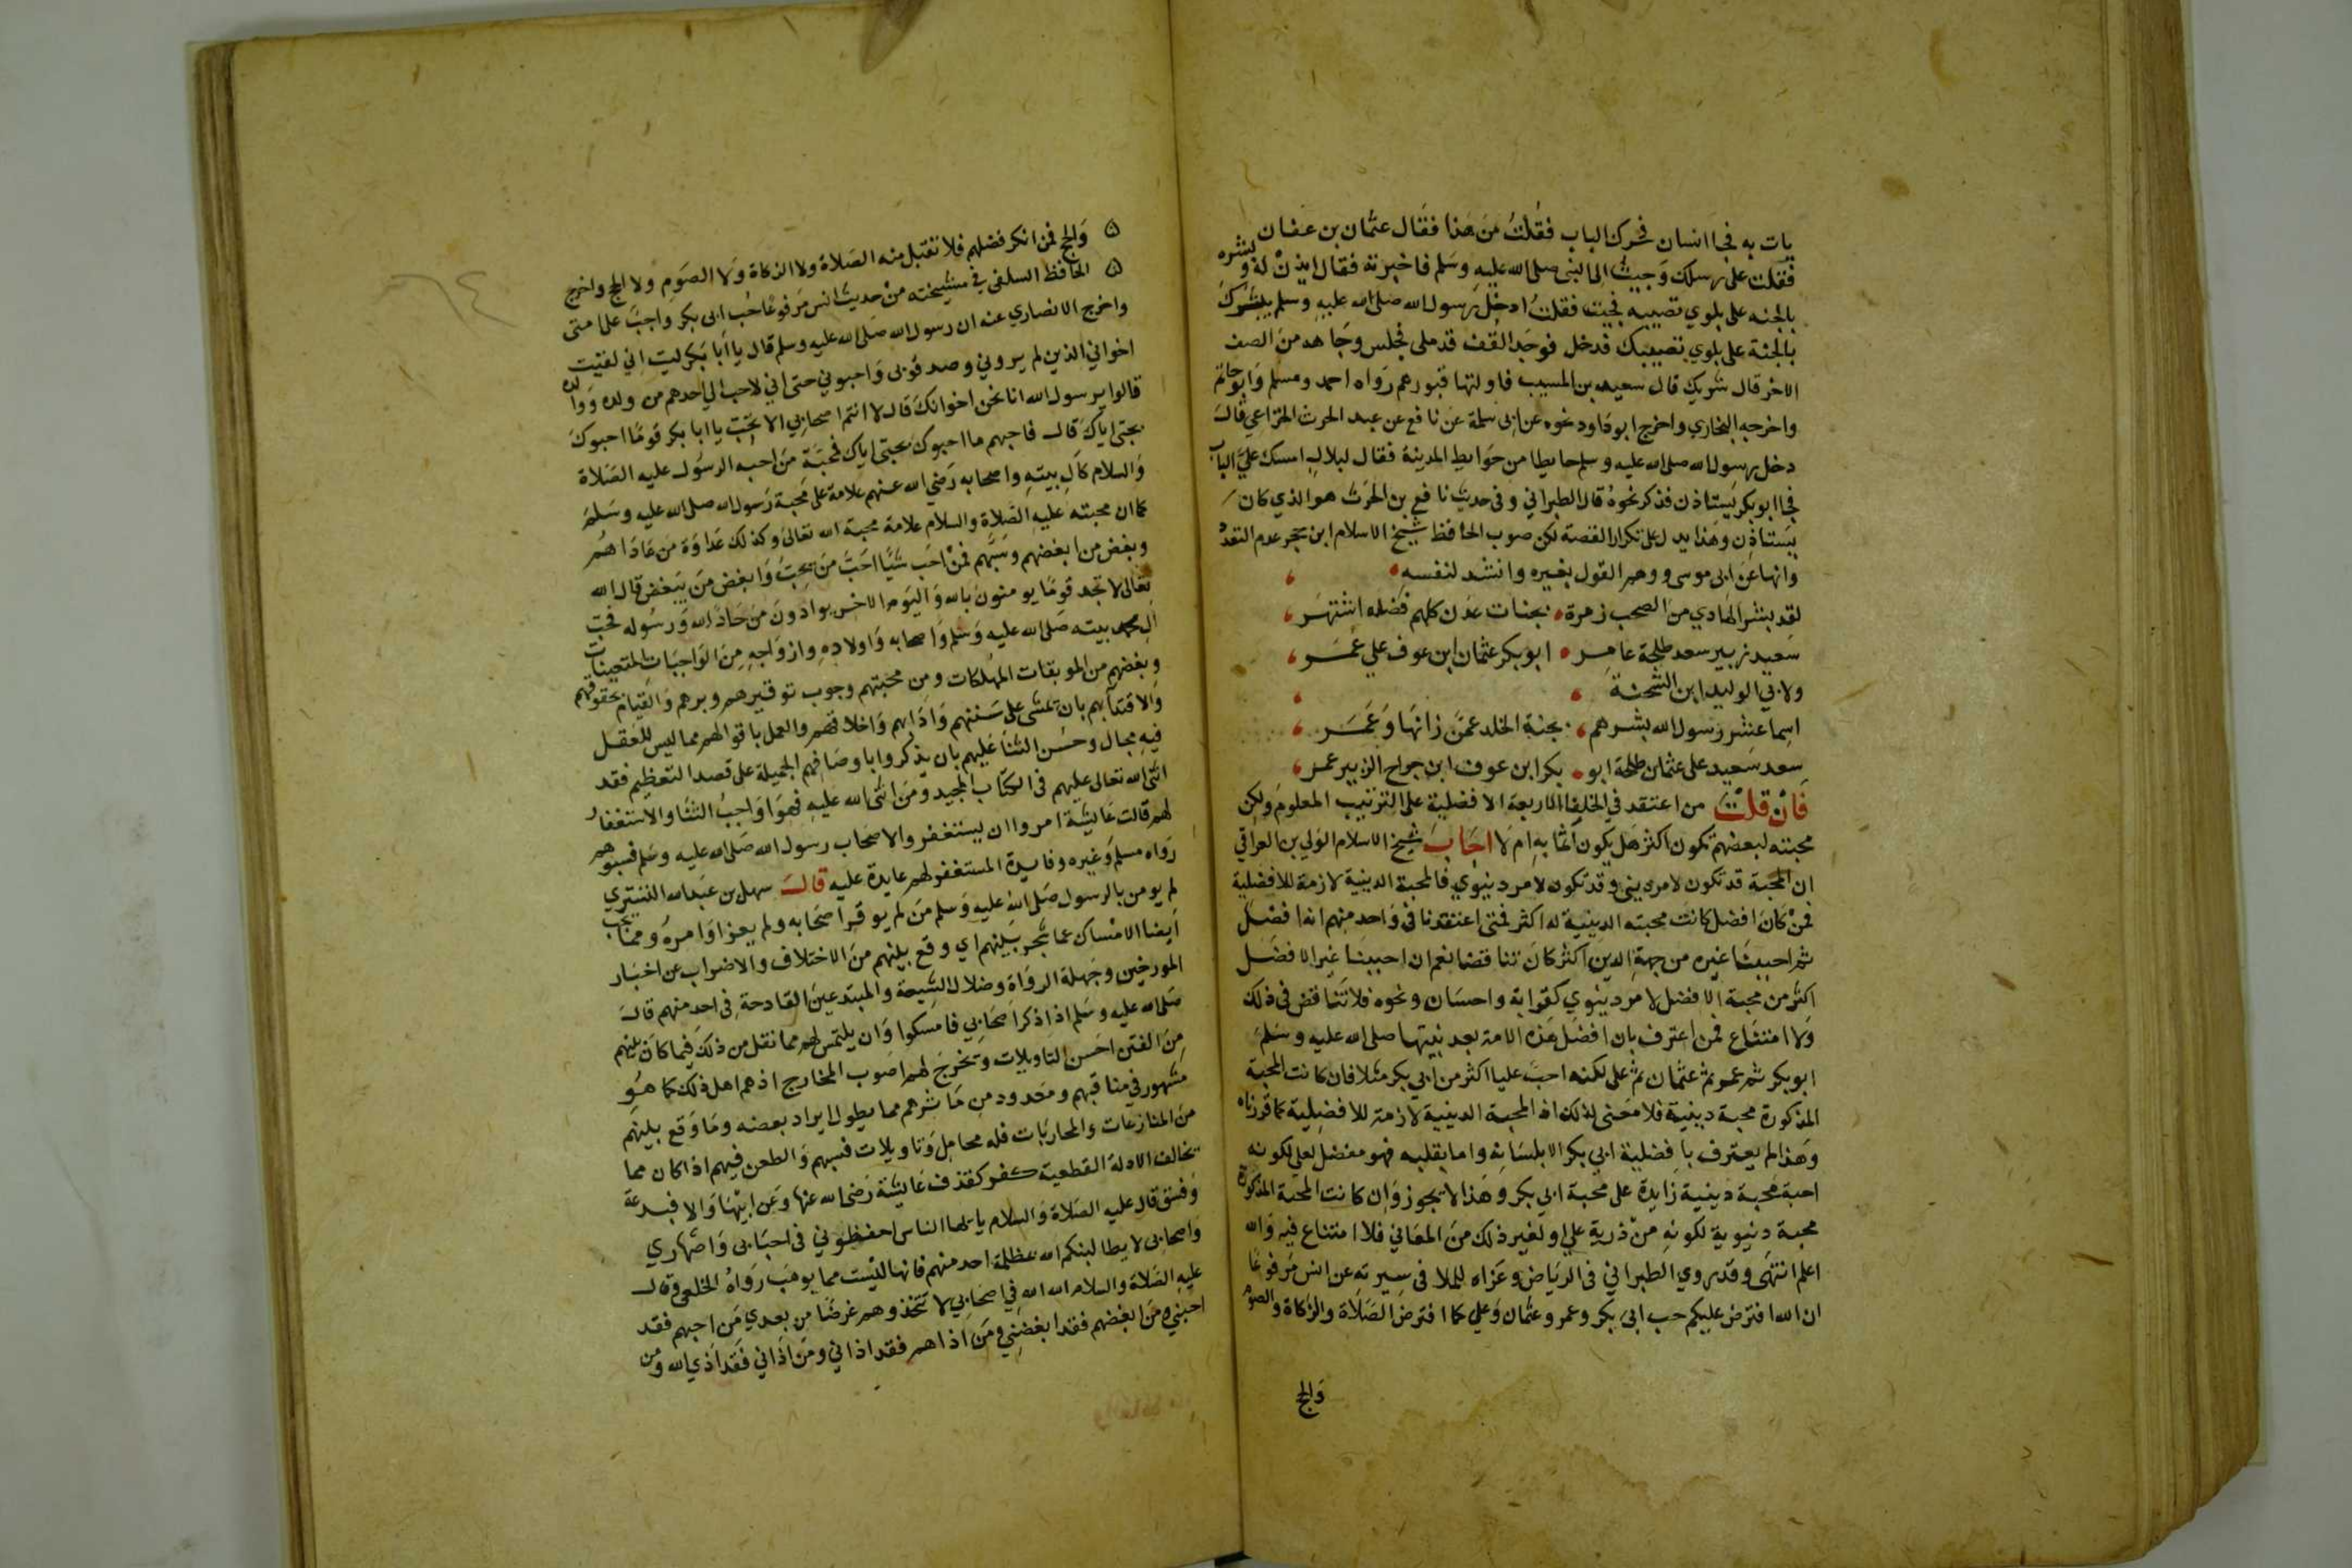 يات به فجا انسان فحرك الباب فقلت من هذا فقال عثمان بن عفان
فقلت على رسلك وجيت الى النبي صلى الله عليه وسلم فاخبرته فقال ايذن له وبشره
بالجنه على بلوي تصيبه فجيت فقلت ادخل رسول الله صلى الله عليه وسلم يبشرك
بالجنة على بلوي تصيبك فدخل فوجد القف قد ملي فجلس وجاهه من الصف
الاخر قال شريك قال سعيد بن المسيب فاولتها قبورهم رواه احمد ومسلم وابوحاتم
واخرجه البخاري واخرج ابو داود نحوه عن ابي سلمة عن نافع عن عبد الحرث الخزاعي قال
دخل رسول الله صلى الله عليه وسلم حايطا من حوايط المدينة فقال لبلال امسك علي الباب
فجا ابو بكر يستاذن فذكر نحوه قال الطبراني وفي حديث نافع بن الحرث هو الذي كان
يستاذن وهذا يدل على تكرار القصة لكن صوب الحافظ شيخ الاسلام ابن حجر عدم التعدد
وانها عن ابي موسى ووهم القول بغيره وانشد لنفسه
لقد بشر الهادي من الصحب زمرة بجنات عدن كلهم فضله اشتهر
سعيد زبير سعد طلحة عامر ابو بكر عثمان ابن عوف علي عمر
ولابي الوليد ابن الشحنة
اسما عشر رسول الله بشرهم بجنة الخلد عمن زانها وعمر
سعد سعيد علي عثمان طلحة ابو بكر ابن عوف ابن جراح الزبير عمر
فان قلت من اعتقد في الخلفا الاربعة الافضلية على الترتيب المعلوم ولكن
محبته لبعضهم تكون اكثر هل يكون آثما به ام لا اجاب شيخ الاسلام الولي بن العراقي
ان المحبة قد تكون لامر ديني وقد تكون لامر دنيوي فالمحبة الدينية لازمة للافضلية
فمن كان افضل كانت محبته الدينية له اكثر فمتى اعتقدنا في واحد منهم انه افضل
ثم احببنا غيره من جهة الدين اكثر كان تناقضا نعم ان احببنا غير الافضل
اكثر من محبة الافضل لامر دنيوي كقرابة واحسان ونحوه فلا تناقض في ذلك
ولا امتناع فمن اعترف بان افضل هذه الامة بعد نبيها صلى الله عليه وسلم
ابو بكر ثم عمر ثم عثمان ثم علي لكنه احب عليا اكثر من ابي بكر مثلا فان كانت المحبة
المذكورة محبة دينية فلا معنى لذلك اذ المحبة الدينية لازمة للافضلية كما قررناه
وهذا لم يعترف بافضلية ابي بكر الا بلسانه واما بقلبه فهو مفضل لعلي لكونه
احبة محبة دينية زايدة على محبة ابي بكر وهذا لا يجوز وان كانت المحبة المذكورة
محبة دنيوية لكونه من ذرية علي او لغير ذلك من المعاني فلا امتناع فيه والله
اعلم انتهى وقد روي الطبراني في الرياض وعزاه للملا في سيرته عن انس مرفوعا
ان الله افترض عليكم حب ابي بكر وعمر وعثمان وعلي كما افترض الصلاة والزكاة والصوم
والحج
والحج فمن انكر فضلهم فلا تقبل منه الصلاة ولا الزكاة ولا الصوم ولا الحج واخرج
الحافظ السلفي في مشيخته من حديث انس مرفوعا حب ابي بكر واجب على امتي
واخرج الانصاري عنه ان رسول الله صلى الله عليه وسلم قال يا ابا بكر ليت اني لقيت
اخواني الذين لم يروني وصدقوني واحبوني حتى اني لاحب الى احدهم من ولده ووالده
قالوا يرسول الله انا نحن اخوانك قال لا انتم اصحابي الا تحب يا ابا بكر قوما احبوك
بحبي اياك قال فاحبهم ما احبوك بحبي اياك فمحبة من احبه الرسول عليه الصلاة
والسلام كآل بيته واصحابه رضي الله عنهم علامة على محبة رسول الله صلى الله عليه وسلم
كما ان محبته عليه الصلاة والسلام علامة محبة الله تعالى وكذلك عداوة من عاداهم
وبغض من ابغضهم وسبهم فمن احب شيا احب من يحب وابغض من يبغض قال الله
تعالى لا تجد قوما يومنون بالله واليوم الاخر يوادون من حاد الله ورسوله فحب
آل محمد بيته صلى الله عليه وسلم واصحابه واولاده وازواجه من الواجبات المتعينات
وبغضهم من الموبقات المهلكات ومن محبتهم وجوب توقيرهم وبرهم والقيام بحقوقهم
والاقتدآ بهم بان تمشى على سننهم وادابهم واخلاقهم والعمل باقوالهم مما ليس للعقل
فيه مجال وحسن الثنا عليهم بان يذكروا باوصافهم الجميلة على قصد التعظيم فقد
اثنى الله تعالى عليهم في الكتاب المجيد ومن اثنى الله عليه فهو اواجب الثنا والاستغفار
لهم قالت عايشة امروا ان يستغفروا لاصحاب رسول الله صلى الله عليه وسلم فسبوهم
رواه مسلم وغيره وفايدة المستغفر لهم عايدة عليه قال سهل بن عبد الله التستري
لم يومن بالرسول صلى الله عليه وسلم من لم يوقر اصحابه ولم يعز اوامره ومما يجب
ايضا الامساك عما شجر بينهم اي وقع بينهم من الاختلاف والاضراب عن اخبار
المورخين وجهلة الرواة وضلال الشيعة والمبتدعين القادحة في احد منهم قال
صلى الله عليه وسلم اذا ذكر اصحابي فامسكوا وان يلتمس لهم مما نقل من ذلك فيما كان بينهم
من الفتن احسن التاويلات وتخرج لهم اصوب المخارج اذ هم اهل ذلك كما هو
مشهور في مناقبهم ومعدود من مآثرهم مما يطول ايراد بعضه وما وقع بينهم
من المنازعات والمحاربات فله محامل وتاويلات فسبهم والطعن فيهم اذا كان مما
تخالف الادلة القطعية كفر كقذف عايشة رضي الله عنها وعن ابيها والا فبدعة
وفسق قال عليه الصلاة والسلام يا ايها الناس احفظوني في احبابي واصهاري
واصحابي لا يطالبنكم الله بمظلمة احد منهم فانها ليست مما يوهب رواه الخلعي وقال
عليه الصلاة والسلام الله الله في اصحابي لا تتخذوهم غرضا من بعدي من احبهم فقد
احبني ومن ابغضهم فقد ابغضني ومن اذاهم فقد اذاني ومن اذاني فقد اذي الله ومن